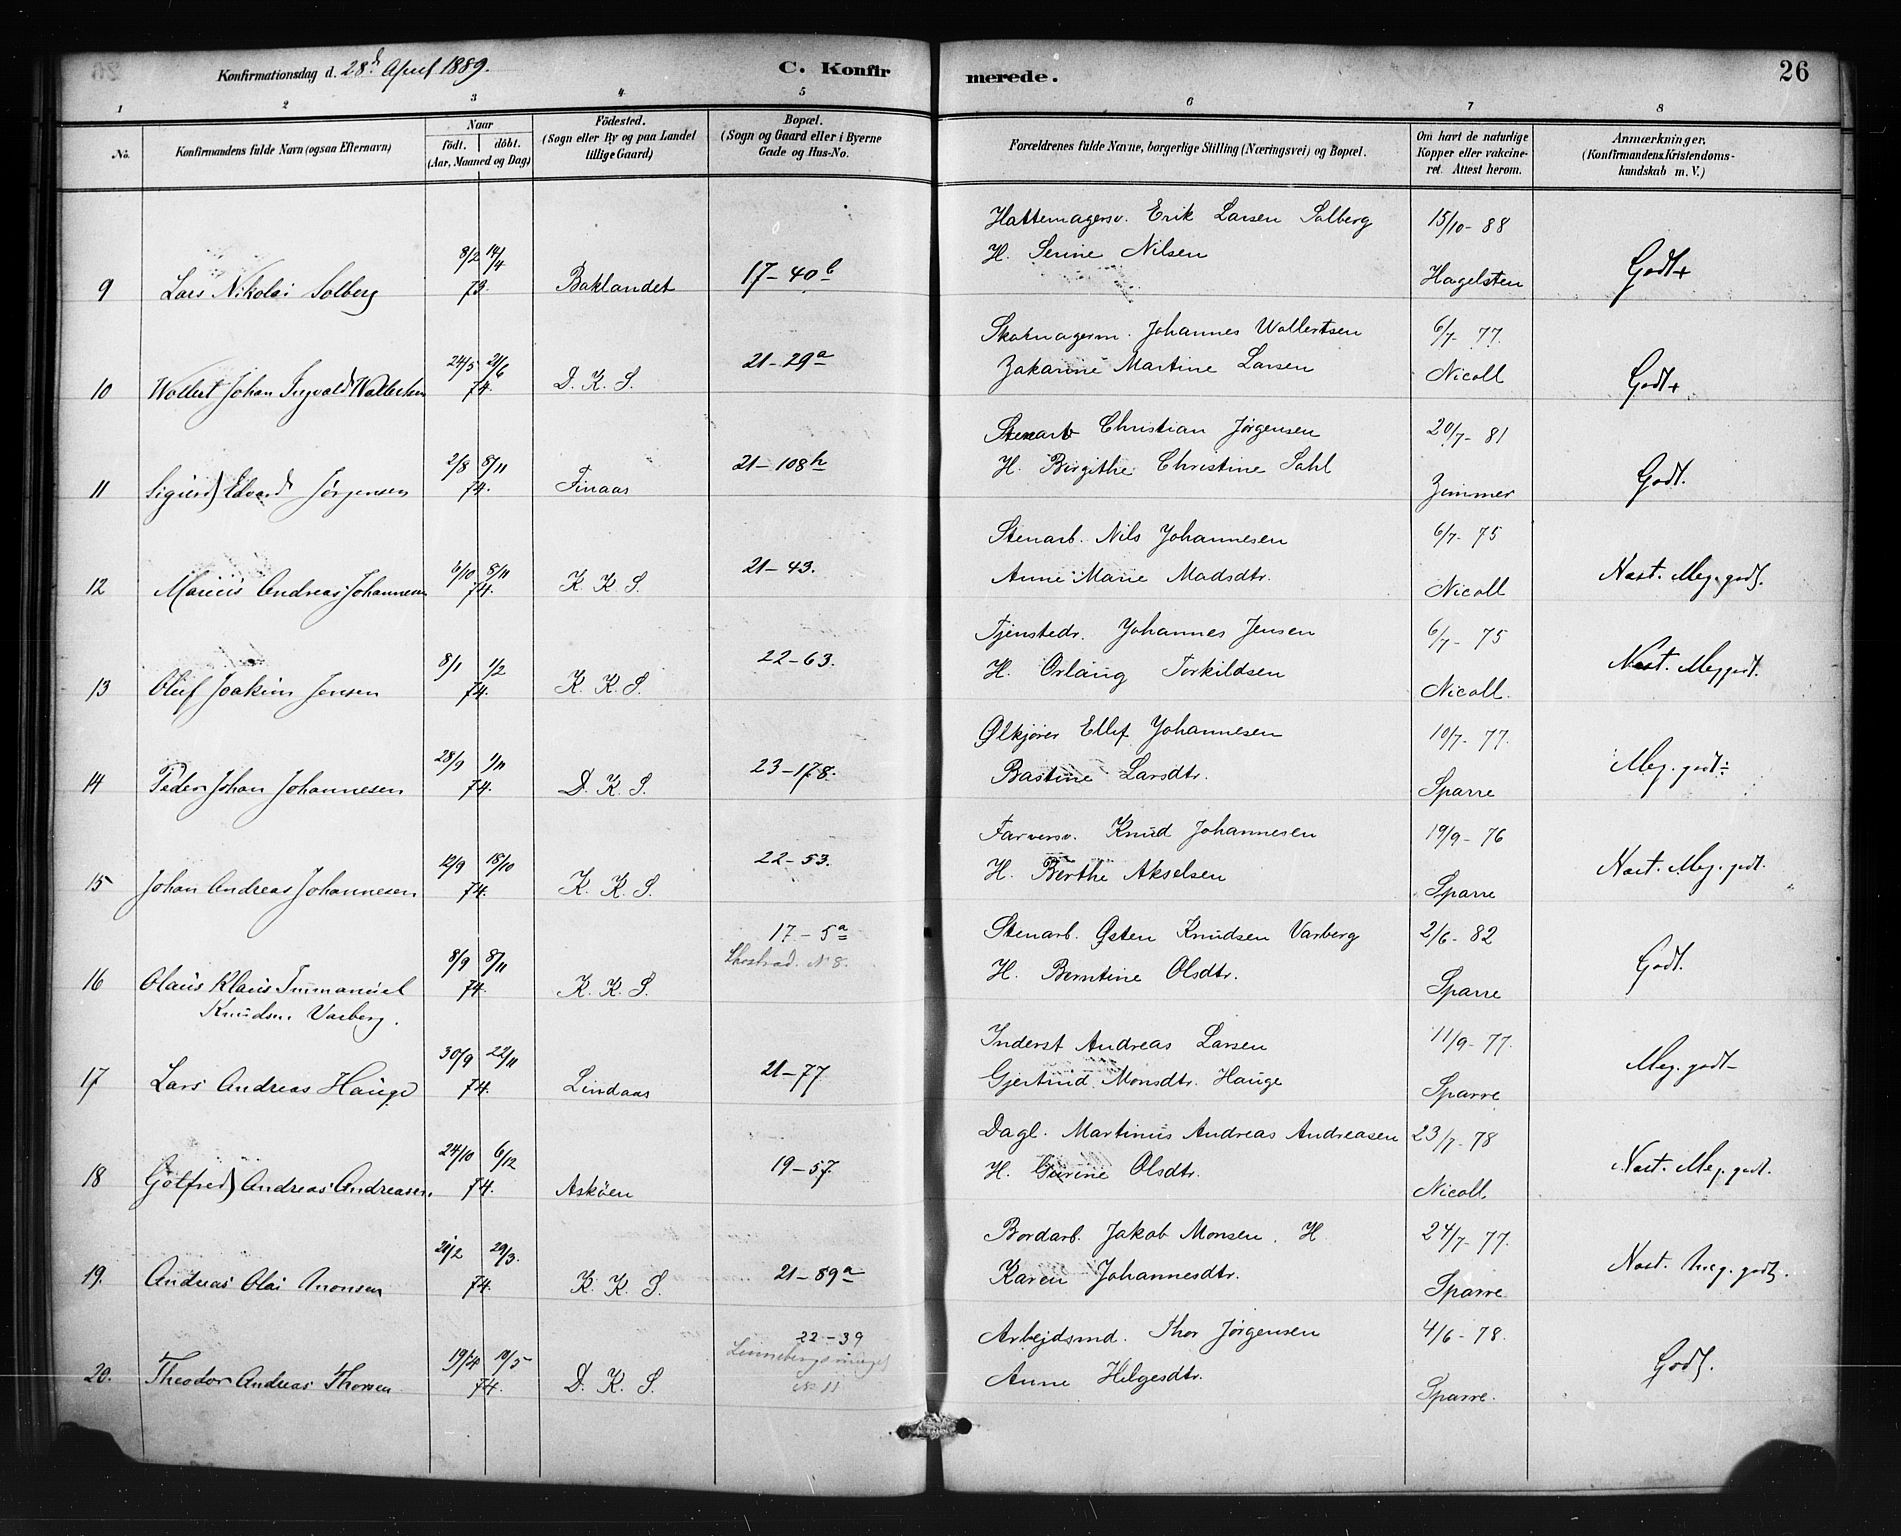 Konfirmationsdag d. 28d April 1889. C. Konfirmerede. 26
1 2 3 4 5 6 7 8
No. Konfirmandens fulde Navn (ogsaa Efternavn) Naar födt. döbt. (Aar, Maaned og Dag) Födested. (Sogn eller By og paa Landet tillige Gaard) Bopæl. (Sogn og Gaard eller i Byerne Gade og Hus-No. Forældrenes fulde Navne, borgerlige Stilling (Næringsvei) og Bopæl. Om havt de naturlige Kopper eller vakcineret. Attest herom. Anmærkninger. (Konfirmandens Kristendomskundskab m. V.)
Hattemagersv. Erik Larsen Solberg 15/10-88
8/2 14/4 H. Serine Nilsen
9 Lars Nikolai Solberg 73. Baklandet 17-40b Hagelsten Godt+
Skomagerm. Johannes Wollertsen 6/7-77.
24/5 21/6 21-29a Zakarine Martine Larsen
10 Wollert Johan Ingvald Wollertsen 74. D. K. S. Nicoll Godt+
Stenarb Christian Jørgensen 20/7-81
2/8 8/11 21-108h H. Birgithe Christine Dahl
11 Sigurd Edvard Jørgensen 74. Finaas Zimmer Godt.
Stenarb. Nils Johannesen 6/7-75
6/10 8/11 21-43. Anne Marie Madsdtr.
12 Marius Andreas Johannesen 74. K. K. S. Nicoll Næst. Meg. godt.
Tjenstedr. Johannes Jensen 6/7-75
8/1 1/2 22-63. H. Orlaug Torkildsen
13 Oluf Joakim Jensen 74. K. K. S. Nicoll. Næst. Meg godt.
Ølkjører Ellef Johannesen 10/7-77.
28/9 1/11 23-178. Bastine Larsdtr.
14 Peder Johan Johannesen 74. D. K. S. Sparre Meg. godt÷
Farversv. Knud Johannesen 19/9-76
12/9 18/10 22-53. H. Berthe Akselsen
15 Johan Andreas Johannesen 74. K. K. S. Sparre Næst. Meg. godt.
17-5a Stenarb. Østen Knudsen Varberg 2/6-82
8/9 8/11 N 8. H. Berntine Olsdtr.
16 Olaus Klaus Immanuel 74. K. K. S. Sparre Godt.
Knudsen Varberg.
Inderst Andreas Larsen 11/9-77.
30/9 22/11 21-77 Gjertrud Monsdtr. Hauge
17 Lars Andreas Hauge 74. Lindaas Sparre Meg. godt-
Dagl. Martinus Andreas Andreasen 23/7-78
24/10 6/12 19-57. H. Gurine Olsdtr.
18 Gotfred Andreas Andreasen. 74. Askøen Nicoll. Næst. Meg. godt.
Bordarb. Jakob Monsen. H 24/7-77.
21/2 29/3. 21-89a Karen Johannesdtr.
19. Andreas Olai Monsen 74. K. K. S. Sparre Næst. Meg. godt.
22-39 Arbejdsmd. Thor Jørgensen 4/6-78.
19/4 10/5 Anne Helgesdtr.
20. Theodor Andreas Thorsen 74. D. K. S. No 11 Sparre. Godt.